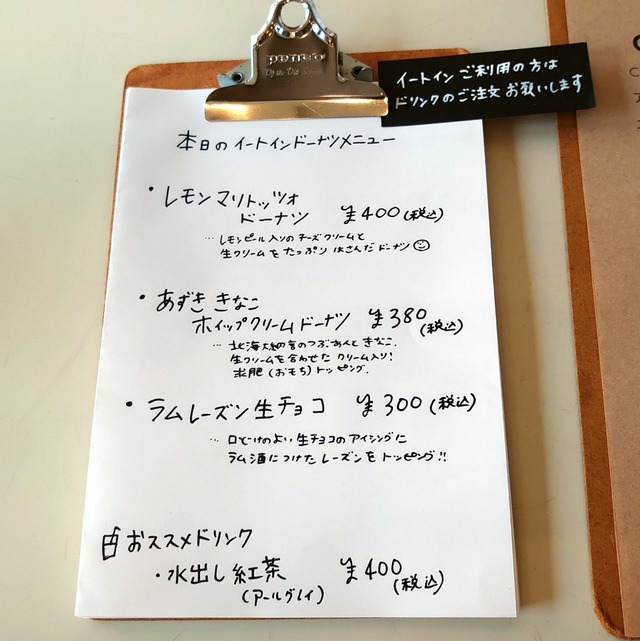 penco
イートイン ご利用の方は
ドリンクのご注文お願いします
本日のイートインドーナツメニュー
・レモンマリトッツォ
ドーナツ ¥400(税込)
… レモンピール入りのチーズクリームと
生クリームをたっぷりはさんだドーナツ☺
・あずききなこ
ホイップクリームドーナツ ¥380(税込)
… 北海大納言のつぶあんときなこ、
生クリームを合わせたクリーム入り!
求肥(おもち)トッピング.
・ラムレーズン生チョコ ¥300(税込)
… 口どけのよい生チョコのアイシングに
ラム酒につけたレーズンをトッピング!!
おススメドリンク
・水出し紅茶 ¥400
(アールグレイ) (税込)